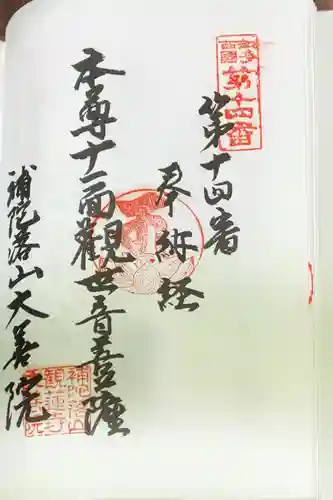 第十四番
第十四番
奉納経
本尊十一面観世音菩薩
補陀落山大善院